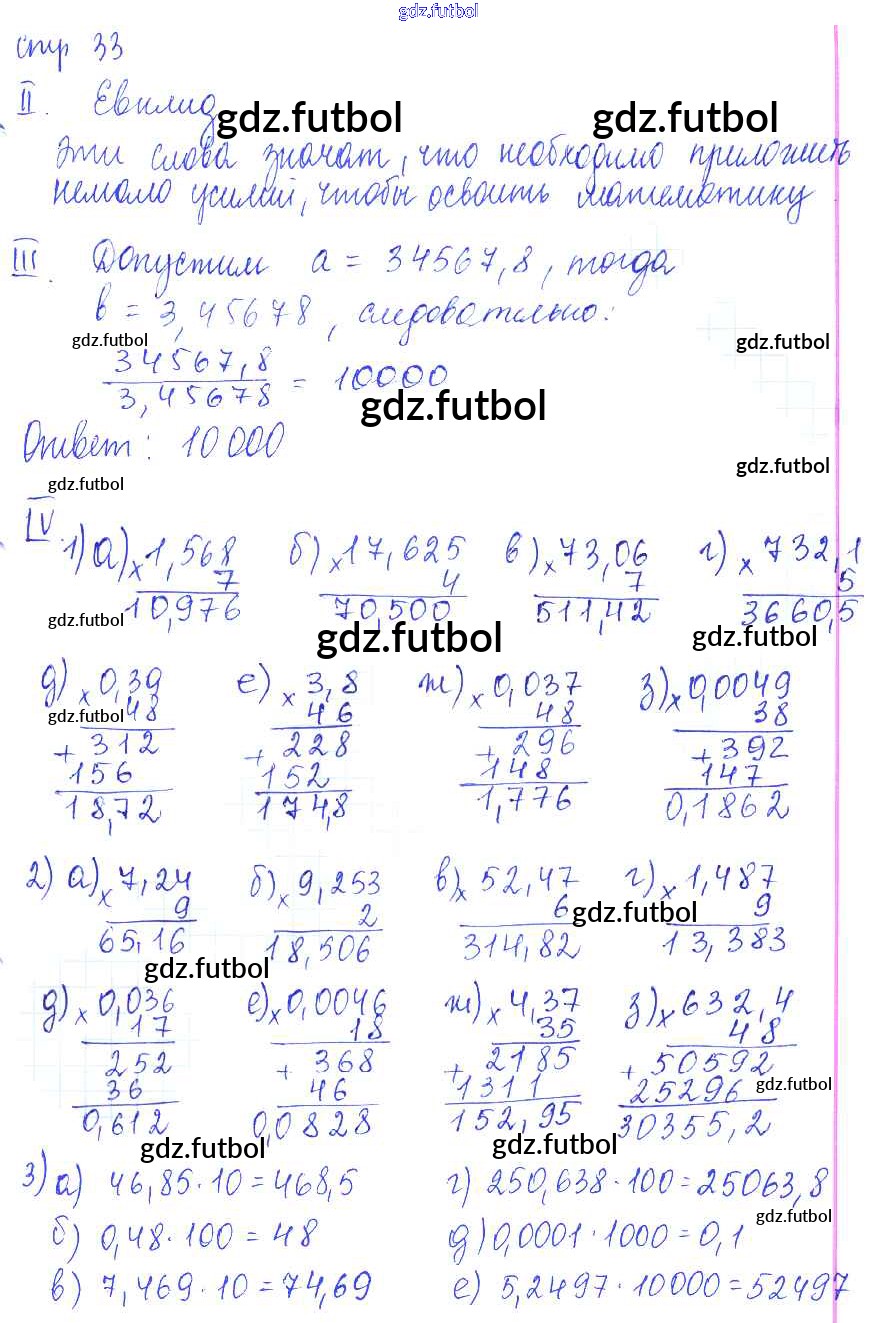 gdz.futbol
стр 33
II. Евклид gdz.futbol gdz.futbol
Эти слова значат, что необходимо приложить
немало усилий, чтобы освоить математику
III. Допустим a = 34567,8, тогда
b = 3,45678, следовательно:
gdz.futbol gdz.futbol
34567,8
3,45678 = 10000
gdz.futbol
Ответ: 10000
gdz.futbol
gdz.futbol
IV.
1) а) × 1,568 б) × 17,625 в) × 73,06 г) × 732,1
7 4 7 5
10,976 70,500 511,42 3660,5
gdz.futbol gdz.futbol gdz.futbol
д) × 0,39 е) × 3,8 ж) × 0,037 з) × 0,0049
gdz.futbol 48 46 48 38
+ 312 + 228 + 296 + 392
156 152 148 147
18,72 174,8 1,776 0,1862
2) а) × 7,24 б) × 9,253 в) × 52,47 г) × 1,487
9 2 6 gdz.futbol 9
65,16 18,506 314,82 13,383
gdz.futbol
д) × 0,036 е) × 0,0046 ж) × 4,37 з) × 632,4
17 18 35 48
252 + 368 + 2185 + 50592
36 46 1311 25296 gdz.futbol
0,612 0,0828 152,95 30355,2
gdz.futbol gdz.futbol
3) а) 46,85 · 10 = 468,5 г) 250,638 · 100 = 25063,8
gdz.futbol
б) 0,48 · 100 = 48 д) 0,0001 · 1000 = 0,1
в) 7,469 · 10 = 74,69 е) 5,2497 · 10000 = 52497